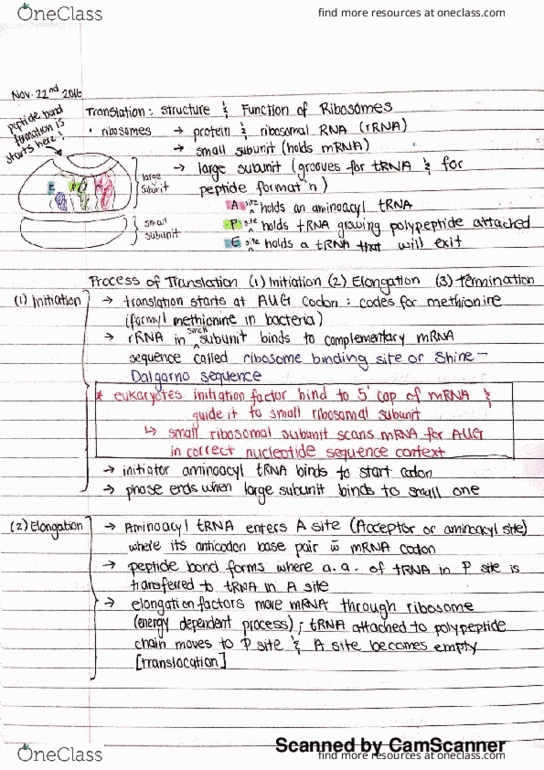 OneClass
find more resources at oneclass.com
Nov. 22nd 2016
peptide bond
formation is
starts here!
Translation: structure & Function of Ribosomes
• ribosomes → protein & ribosomal RNA (rRNA)
→ small subunit (holds mRNA)
→ large subunit (grooves for tRNA & for
peptide format'n)
E P A
large
subunit
small
subunit
A site holds an aminoacyl tRNA
P site holds tRNA growing polypeptide attached
E site holds a tRNA that will exit
Process of Translation (1) Initiation (2) Elongation (3) Termination
(1) Initiation → translation starts at AUG codon: codes for methionine
(formyl methionine in bacteria)
→ rRNA in small subunit binds to complementary mRNA
sequence called ribosome binding site or Shine-
Dalgarno sequence
* eukaryotes initiation factor bind to 5' cap of mRNA &
guide it to small ribosomal subunit
↳ small ribosomal subunit scans mRNA for AUG
in correct nucleotide sequence context
→ initiator aminoacyl tRNA binds to start codon
→ phase ends when large subunit binds to small one
(2) Elongation → Aminoacyl tRNA enters A site (Acceptor or aminoacyl site)
where its anticodon base pair w̄ mRNA codon
→ peptide bond forms where a.a. of tRNA in P site is
transferred to tRNA in A site
→ elongation factors move mRNA through ribosome
(energy dependent process); tRNA attached to polypeptide
chain moves to P site & A site becomes empty
[translocation]
Scanned by CamScanner
OneClass
find more resources at oneclass.com